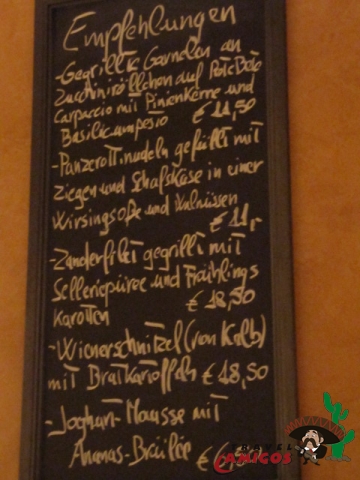 Empfehlungen
-Gegrillte Garnelen an
Zucchiniröllchen auf Rote Bete
Carpaccio mit Pinienkerne und
Basilicumpesto € 11,50
-Panzerottinudeln gefüllt mit
Ziegen und Schafskäse in einer
Wirsingsoße und Walnüssen
€ 11,-
-Zanderfilet gegrillt mit
Selleriepüree und Frühlings
Karotten € 18,50
-Wienerschnitzel (von Kalb)
mit Bratkartoffeln € 18,50
-Joghurt-Mousse mit
Ananas-Brûlée €
TRAVEL
CAMIGOS